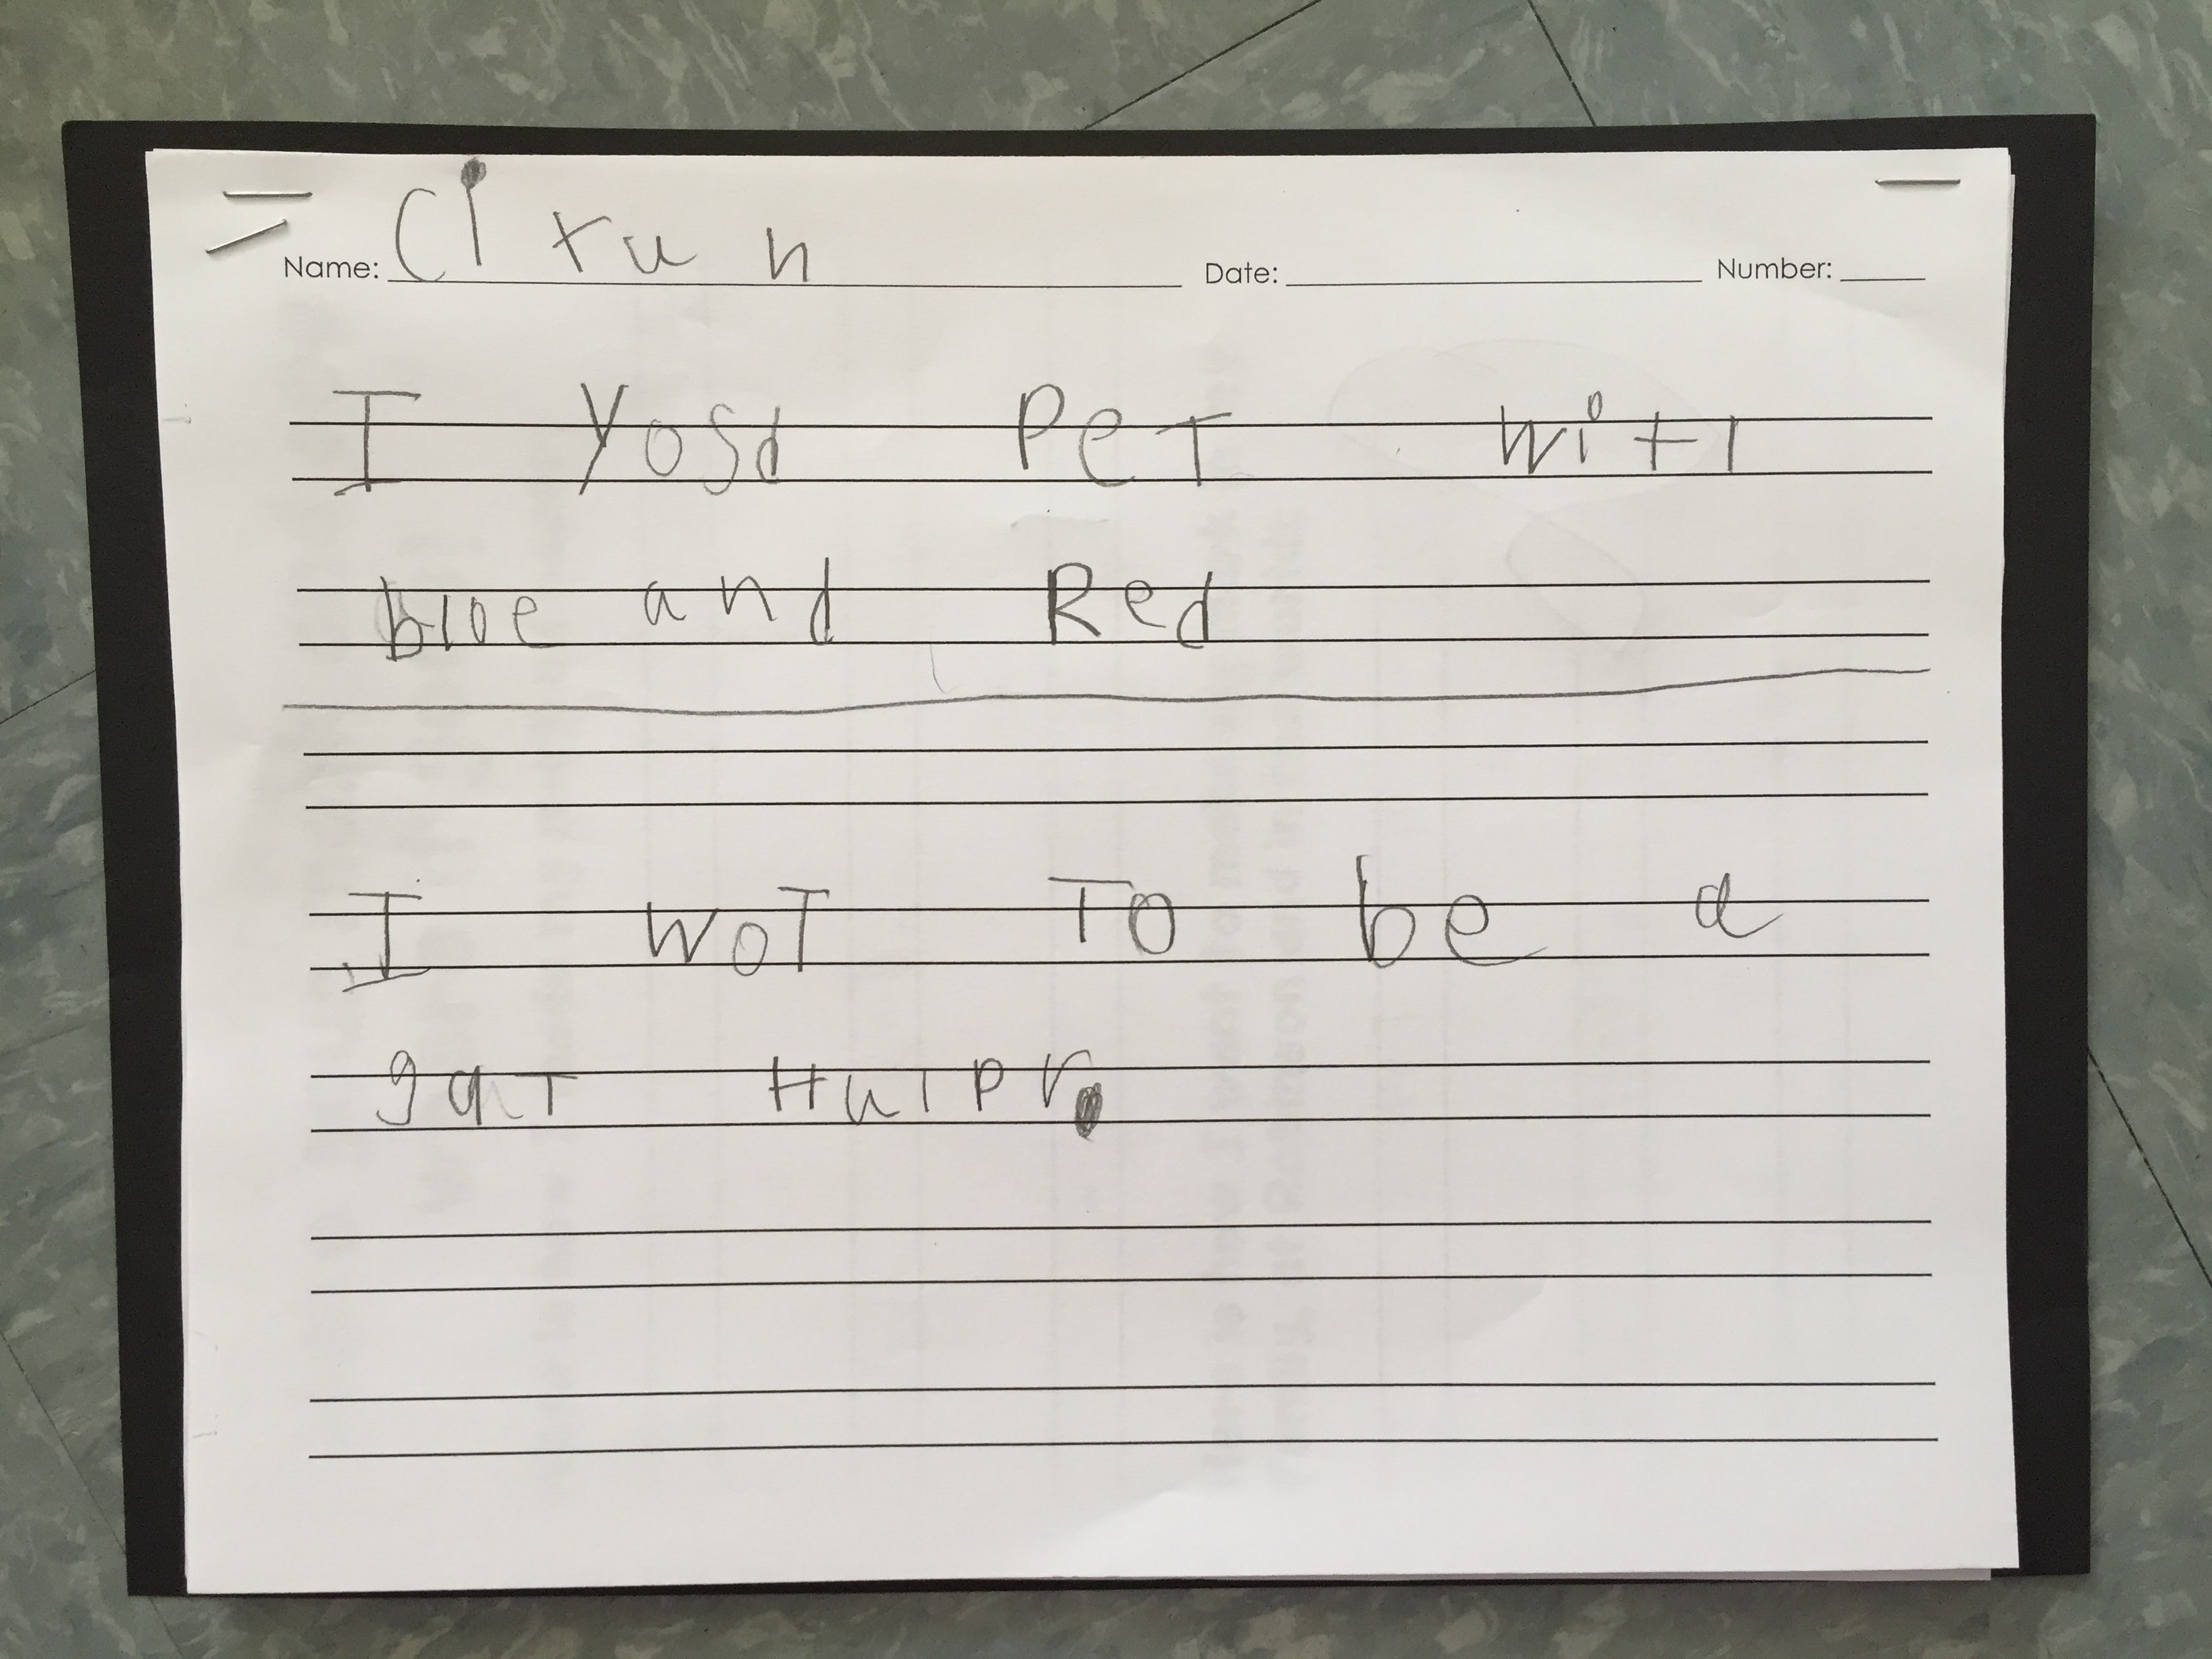 Name: Cirun Date: Number:
I yosd PeT witl
bloe and Red
I woT To be a
gat Hulpr.